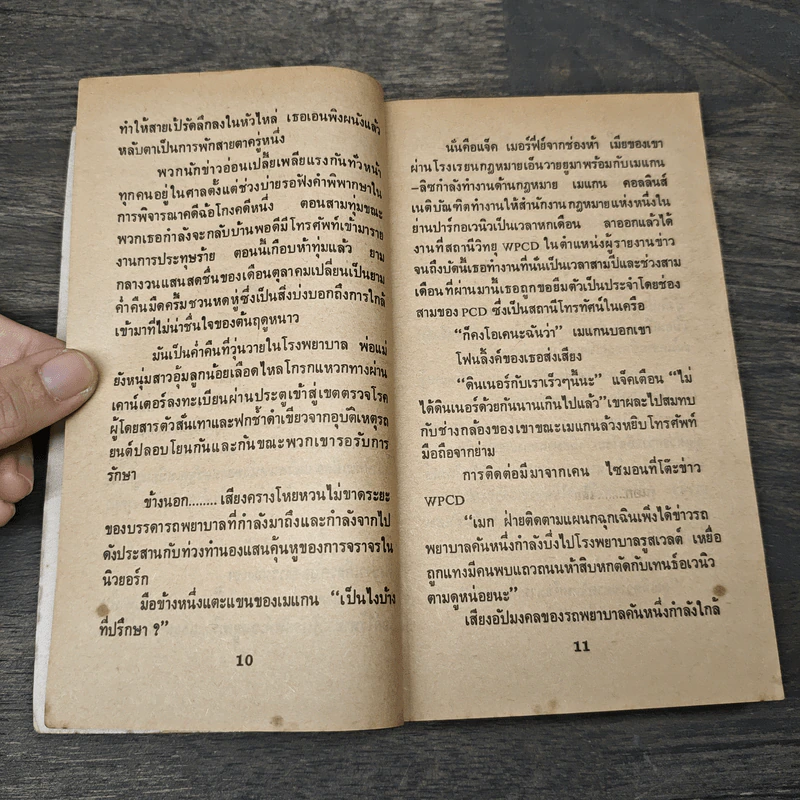 ทำให้สายเป้รัดลึกลงในหัวไหล่ เธอเอนพิงผนังแล้ว
หลับตาเป็นการพักสายตาครู่หนึ่ง
พวกนักข่าวอ่อนเปลี้ยเพลียแรงกันทั่วหน้า
ทุกคนอยู่ในศาลตั้งแต่ช่วงบ่ายรอฟังคำพิพากษาใน
การพิจารณาคดีฉ้อโกงคดีหนึ่ง ตอนสามทุ่มขณะ
พวกเธอกำลังจะกลับบ้านพอดีมีโทรศัพท์เข้ามาราย
งานการประทุษร้าย ตอนนี้เกือบห้าทุ่มแล้ว ยาม
กลางวันแสนสดชื่นของเดือนตุลาคมเปลี่ยนเป็นยาม
ค่ำคืนมืดครึ้มชวนหดหู่ซึ่งเป็นสิ่งบ่งบอกถึงการใกล้
เข้ามาที่ไม่น่าชื่นใจของต้นฤดูหนาว
มันเป็นค่ำคืนที่วุ่นวายในโรงพยาบาล พ่อแม่
ยังหนุ่มสาวอุ้มลูกน้อยเลือดไหลโกรกแหวกทางผ่าน
เคาน์เตอร์ลงทะเบียนผ่านประตูเข้าสู่เขตตรวจโรค
ผู้โดยสารตัวสั่นเทาและฟกช้ำดำเขียวจากอุบัติเหตุรถ
ยนต์ปลอบโยนกันและกันขณะพวกเขารอรับการ
รักษา
ข้างนอก........เสียงครางโหยหวนไม่ขาดระยะ
ของบรรดารถพยาบาลที่กำลังมาถึงและกำลังจากไป
ดังประสานกับท่วงทำนองแสนคุ้นหูของการจราจรใน
นิวยอร์ก
มือข้างหนึ่งแตะแขนของเมแกน “เป็นไงบ้าง
ที่ปรึกษา ?”
10
นั่นคือแจ็ค เมอร์ฟี่ย์จากช่องห้า เมียของเขา
ผ่านโรงเรียนกฎหมายเอ็นวายยูมาพร้อมกับเมแกน
–ลิซกำลังทำงานด้านกฎหมาย เมแกน คอลลินส์
เนติบัณฑิตทำงานให้สำนักงานกฎหมายแห่งหนึ่งใน
ย่านปาร์กอเวนิวเป็นเวลาหกเดือน ลาออกแล้วได้
งานที่สถานีวิทยุ WPCD ในตำแหน่งผู้รายงานข่าว
จนถึงบัดนี้เธอทำงานที่นั่นเป็นเวลาสามปีและช่วงสาม
เดือนที่ผ่านมานี้เธอถูกขอยืมตัวเป็นประจำโดยช่อง
สามของ PCD ซึ่งเป็นสถานีโทรทัศน์ในเครือ
“ก็คงโอเคนะฉันว่า” เมแกนบอกเขา
โฟนลิ้งค์ของเธอส่งเสียง
“ดินเนอร์กับเราเร็วๆนี้นะ” แจ็คเตือน “ไม่
ได้ดินเนอร์ด้วยกันนานเกินไปแล้ว”เขาผละไปสมทบ
กับช่างกล้องของเขาขณะเมแกนล้วงหยิบโทรศัพท์
มือถือจากย่าม
การติดต่อมีมาจากเคน ไซมอนที่โต๊ะข่าว
WPCD
“เมก ฝ่ายติดตามแผนกฉุกเฉินเพิ่งได้ข่าวรถ
พยาบาลคันหนึ่งกำลังบึ่งไปโรงพยาบาลรูสเวลต์ เหยื่อ
ถูกแทงมีคนพบแถวถนนห้าสิบหกตัดกับเทนธ์อเวนิว
ตามดูหน่อยนะ”
เสียงอัปมงคลของรถพยาบาลคันหนึ่งกำลังใกล้
11